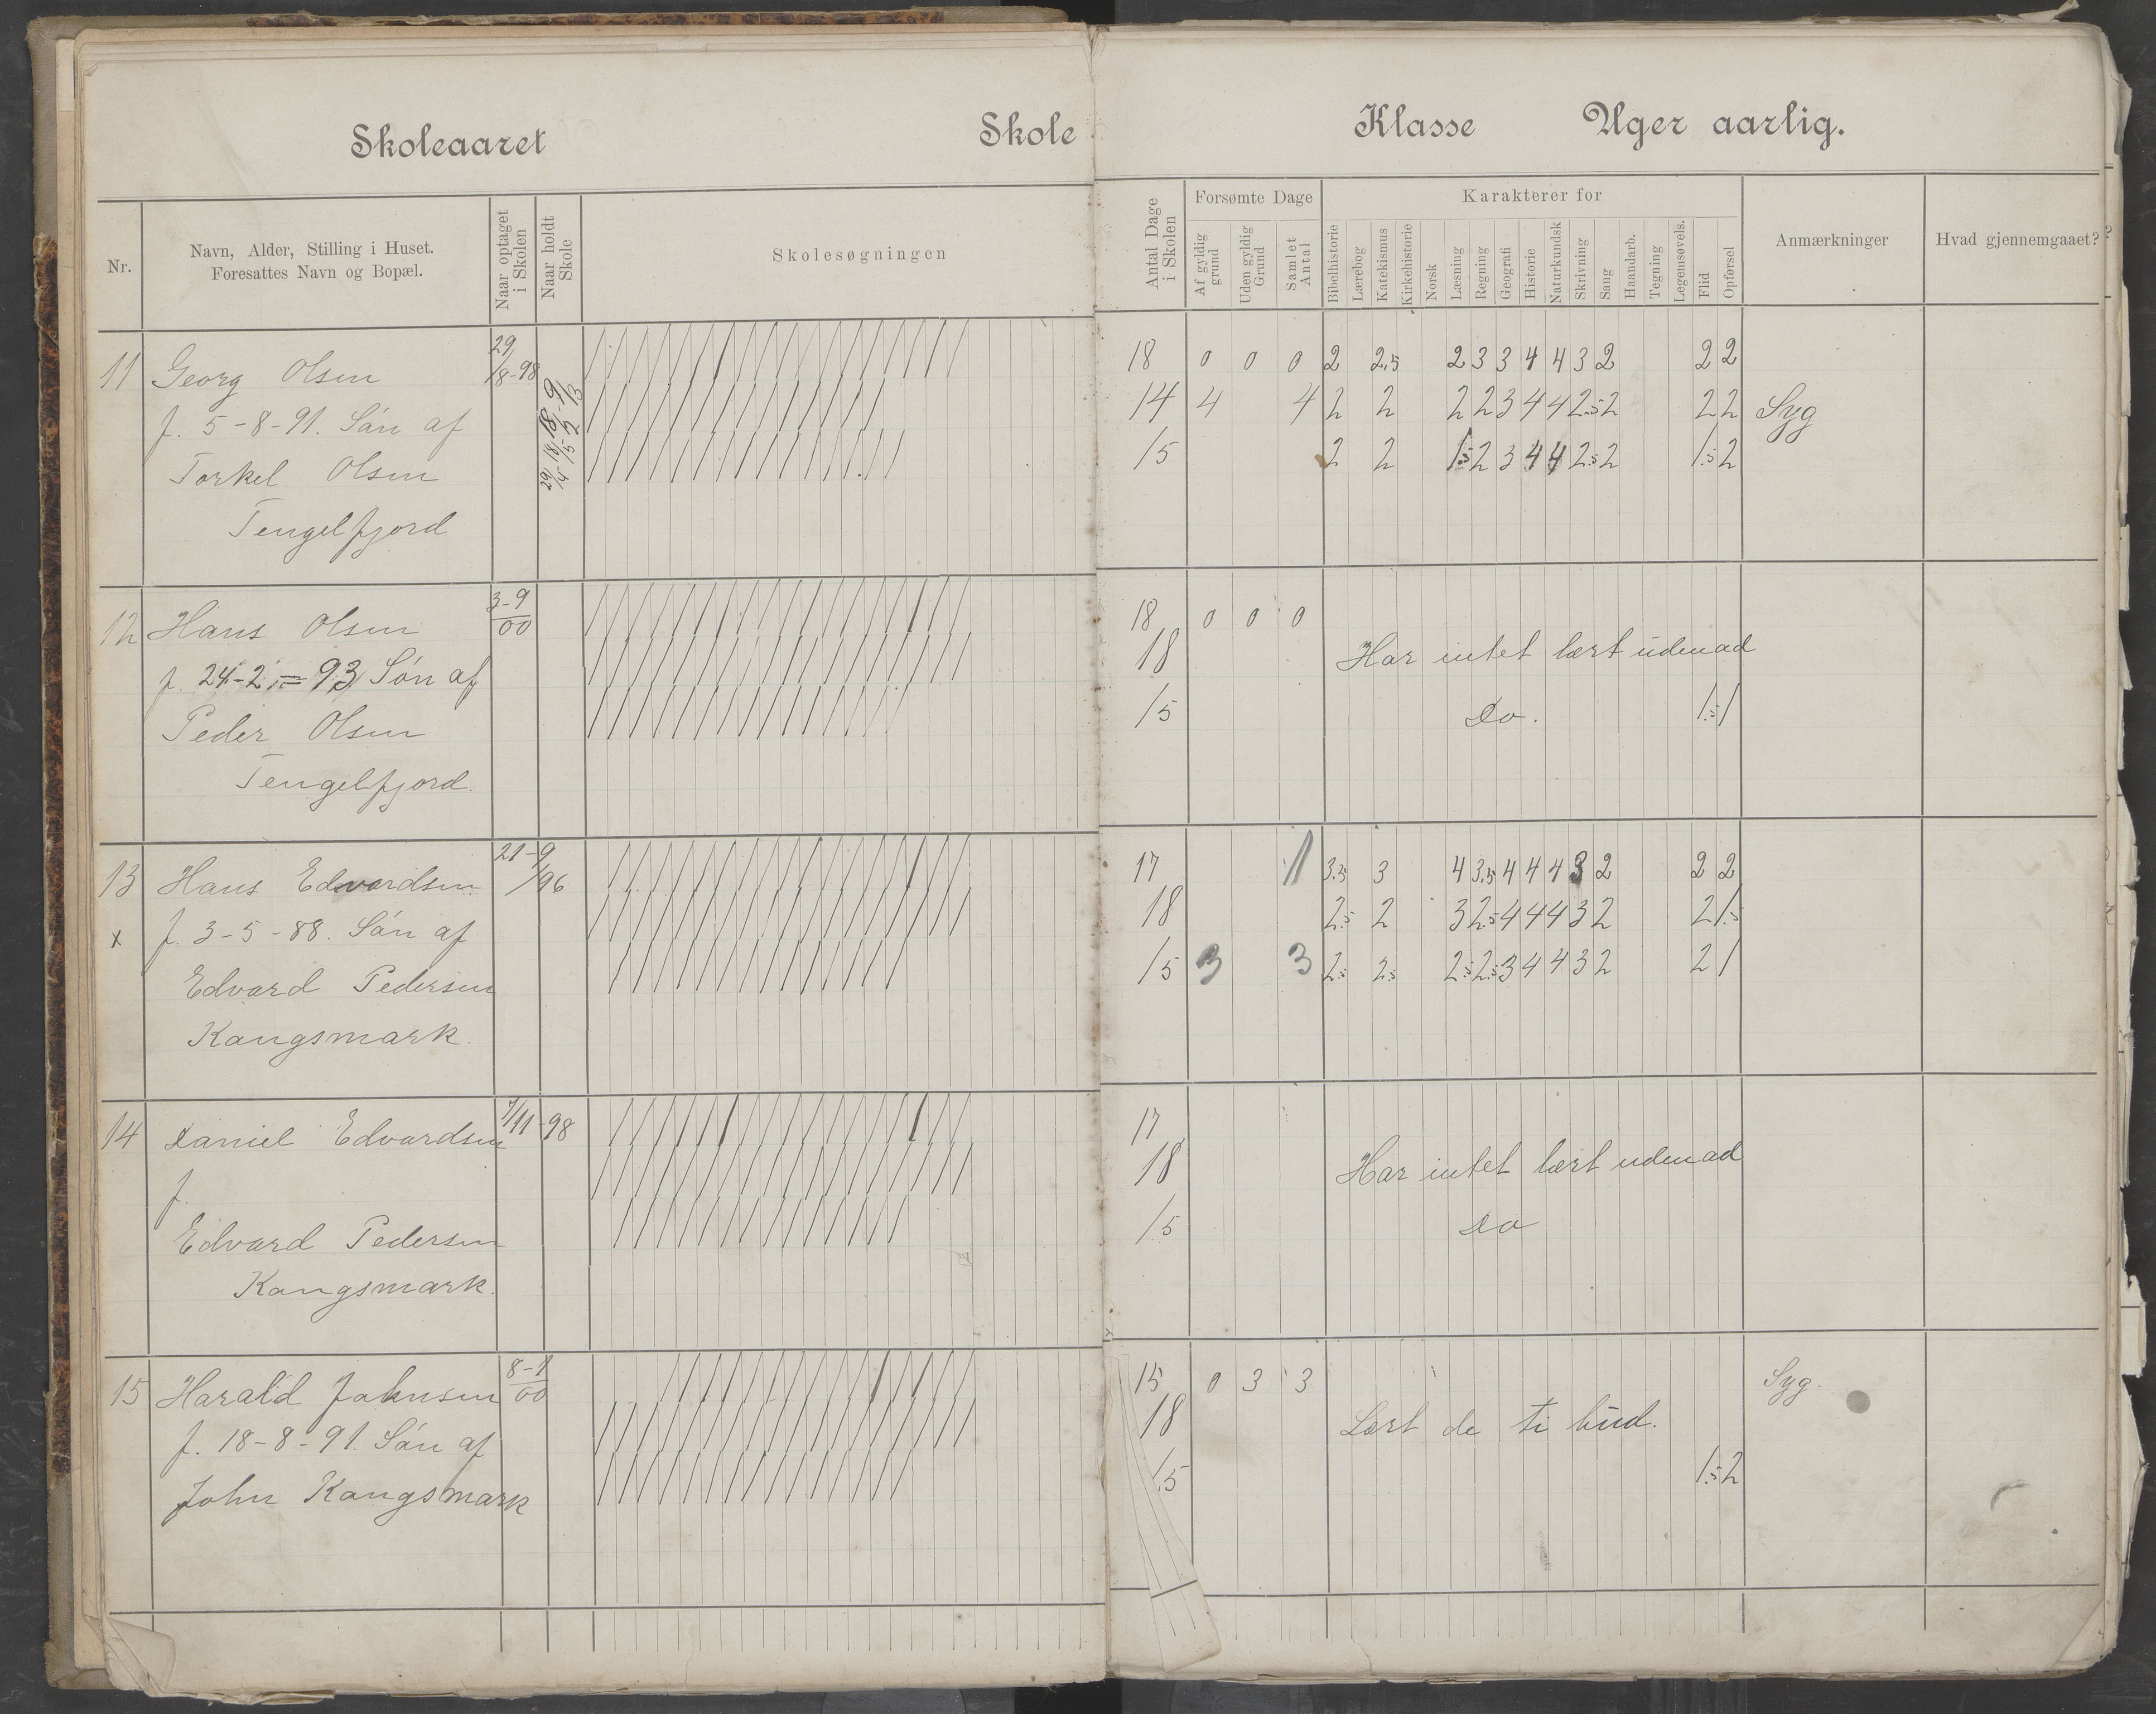 Skoleaaret Skole Klasse Uger aarlig.
Nr.
Navn, Alder, Stilling i Huset.
Foresattes Navn og Bopæl.
Naar optaget i Skolen
Naar holdt Skole
Skolesøgningen
Antal Dage i Skolen
Forsømte Dage
Af gyldig grund
Uden gyldig Grund
Samlet Antal
Karakterer for
Bibelhistorie
Lærebog
Katekismus
Kirkehistorie
Norsk
Læsning
Regning
Geografi
Historie
Naturkundsk
Skrivning
Sang
Haandarb.
Tegning
Legemsøvels.
Flid
Opførsel
Anmærkninger
Hvad gjennemgaaet?
11 Georg Olsen 29/8-98 18 0 0 0 2 2,5 2 3 3 4 4 3 2 2 2
f. 5-8-91. Søn af 14 4 4 2 2 2 2 3 4 4 2.5 2 2 2 Syg
Torkel Olsen 15 2 2 1.5 2 3 4 4 2.5 2 1.5 2
Tengelfjord
12 Hans Olsen 3-9/00 18 0 0 0
f. 24-2-93 Søn af 18 Har intet lært udenad
Peder Olsen 15 Do. 1.5 1
Tengelfjord.
13 Hans Edvardsen 21-9/96 17 1 3.5 3 4 3.5 4 4 4 3 2 2 2
x f. 3-5-88. Søn af 18 2.5 2 3 2.5 4 4 4 3 2 2 1.5
Edvard Pedersen 15 3 3 2.5 2.5 2.5 2.5 3 4 4 3 2 2 1
Kangsmark.
14 Daniel Edvardsen 7/11-98 17
f. 18 Har intet lært udenad
Edvard Pedersen 15 Do
Kangsmark.
15 Harald Johnsen 8-1/00 15 0 3 3 Syg.
f. 18-8-91. Søn af 18 Lært de ti bud.
John Kangsmark 15 1.5 2